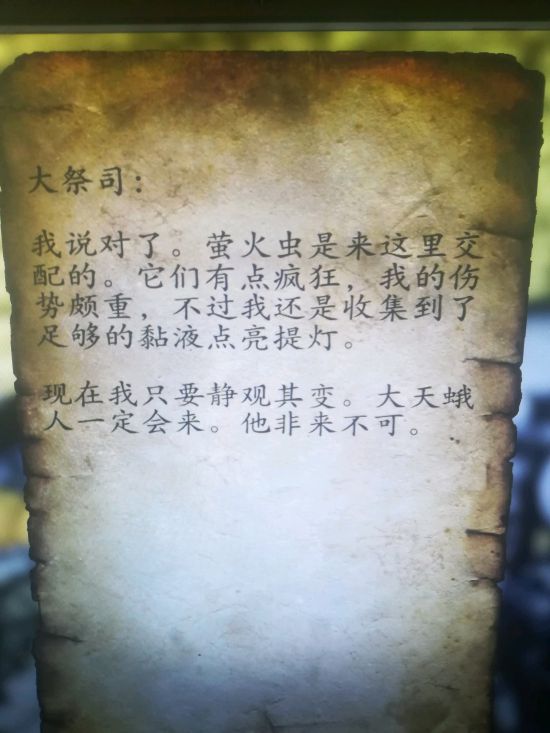 大祭司：
我说对了。萤火虫是来这里交
配的。它们有点疯狂，我的伤
势颇重，不过我还是收集到了
足够的黏液点亮提灯。
现在我只要静观其变。大天蛾
人一定会来。他非来不可。